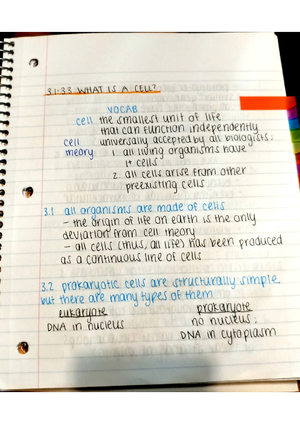 3.1-3.3 WHAT IS A CELL?
VOCAB
cell the smallest unit of life
that can function independently
cell universally accepted by all biologists:
theory: 1. all living organisms have
1+ cells
2. all cells arise from other
preexisting cells
3.1 all organisms are made of cells
- the origin of life on earth is the only
deviation from cell theory
- all cells (thus, all life) has been produced
as a continuous line of cells
3.2 prokaryotic cells are structurally simple
but there are many types of them
eukaryote prokaryote
DNA in nucleus no nucleus;
DNA in cytoplasm